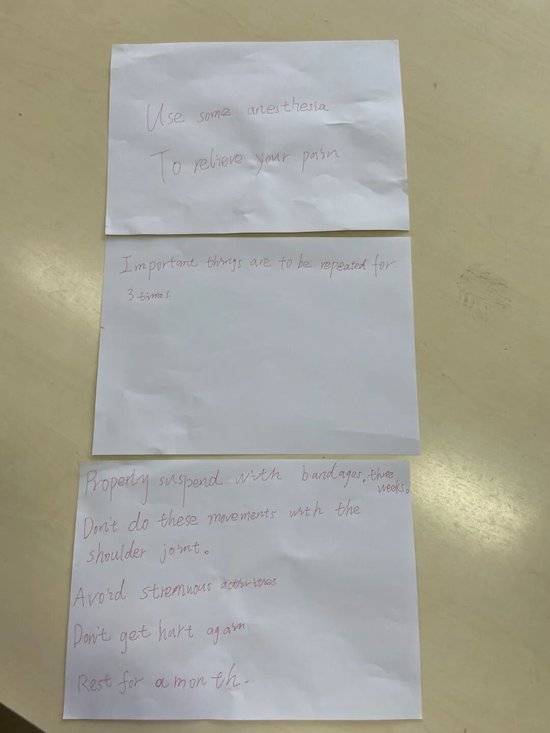 Use some anesthesia
To relieve your pain
Important things are to be repeated for
3 times.
Properly suspend with bandages, three
weeks.
Don't do these movements with the
shoulder joint.
Avoid strenuous activities
Don't get hurt again
Rest for a month.